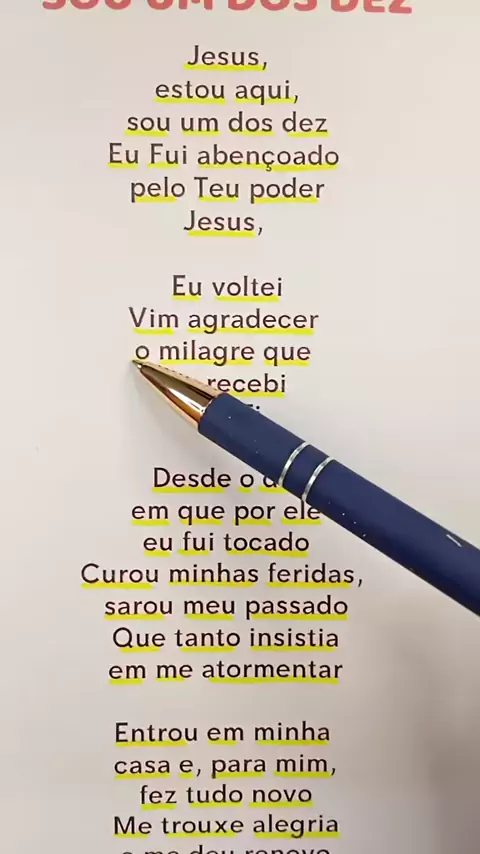 SOU UM DOS DEZ
Jesus,
estou aqui,
sou um dos dez
Eu Fui abençoado
pelo Teu poder
Jesus,
Eu voltei
Vim agradecer
o milagre que
recebi
Desde o
em que por ele
eu fui tocado
Curou minhas feridas,
sarou meu passado
Que tanto insistia
em me atormentar
Entrou em minha
casa e, para mim,
fez tudo novo
Me trouxe alegria
e me deu renovo